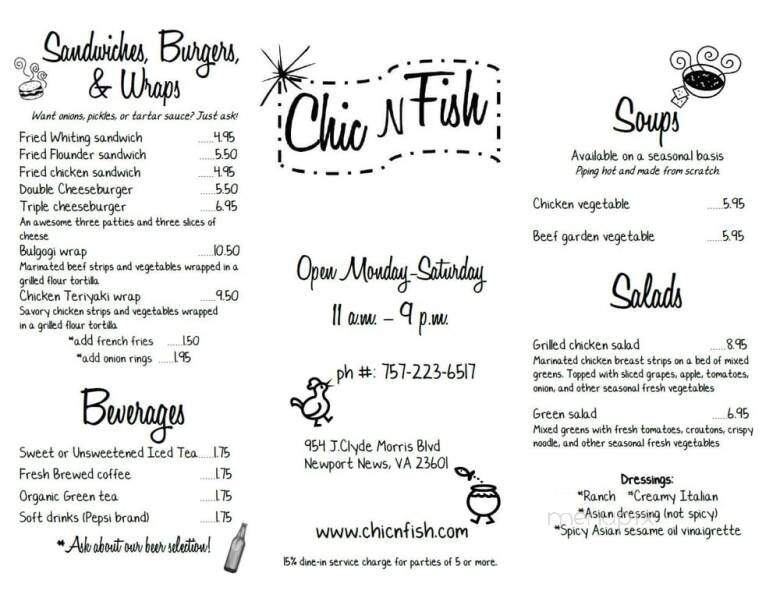 Sandwiches, Burgers,
& Wraps
Want onions, pickles, or tartar sauce? Just ask!
Fried Whiting sandwich ......4.95
Fried Flounder sandwich .....5.50
Fried chicken sandwich .....4.95
Double Cheeseburger .....5.50
Triple cheeseburger .....6.95
An awesome three patties and three slices of
cheese
Bulgogi wrap .....10.50
Marinated beef strips and vegetables wrapped in a
grilled flour tortilla
Chicken Teriyaki wrap .....9.50
Savory chicken strips and vegetables wrapped
in a grilled flour tortilla
*add french fries .....1.50
*add onion rings .....1.95
Beverages
Sweet or Unsweetened Iced Tea.....1.75
Fresh Brewed coffee .....1.75
Organic Green tea .....1.75
Soft drinks (Pepsi brand) .....1.75
*Ask about our beer selection!
Chic N Fish
Open Monday-Saturday
11 a.m. – 9 p.m.
ph #: 757-223-6517
954 J.Clyde Morris Blvd
Newport News, VA 23601
www.chicnfish.com
15% dine-in service charge for parties of 5 or more.
Soups
Available on a seasonal basis
Piping hot and made from scratch.
Chicken vegetable ......5.95
Beef garden vegetable ......5.95
Salads
Grilled chicken salad ......8.95
Marinated chicken breast strips on a bed of mixed
greens. Topped with sliced grapes, apple, tomatoes,
onion, and other seasonal fresh vegetables
Green salad .....6.95
Mixed greens with fresh tomatoes, croutons, crispy
noodle, and other seasonal fresh vegetables
Dressings:
*Ranch *Creamy Italian
*Asian dressing (not spicy)
*Spicy Asian sesame oil vinaigrette